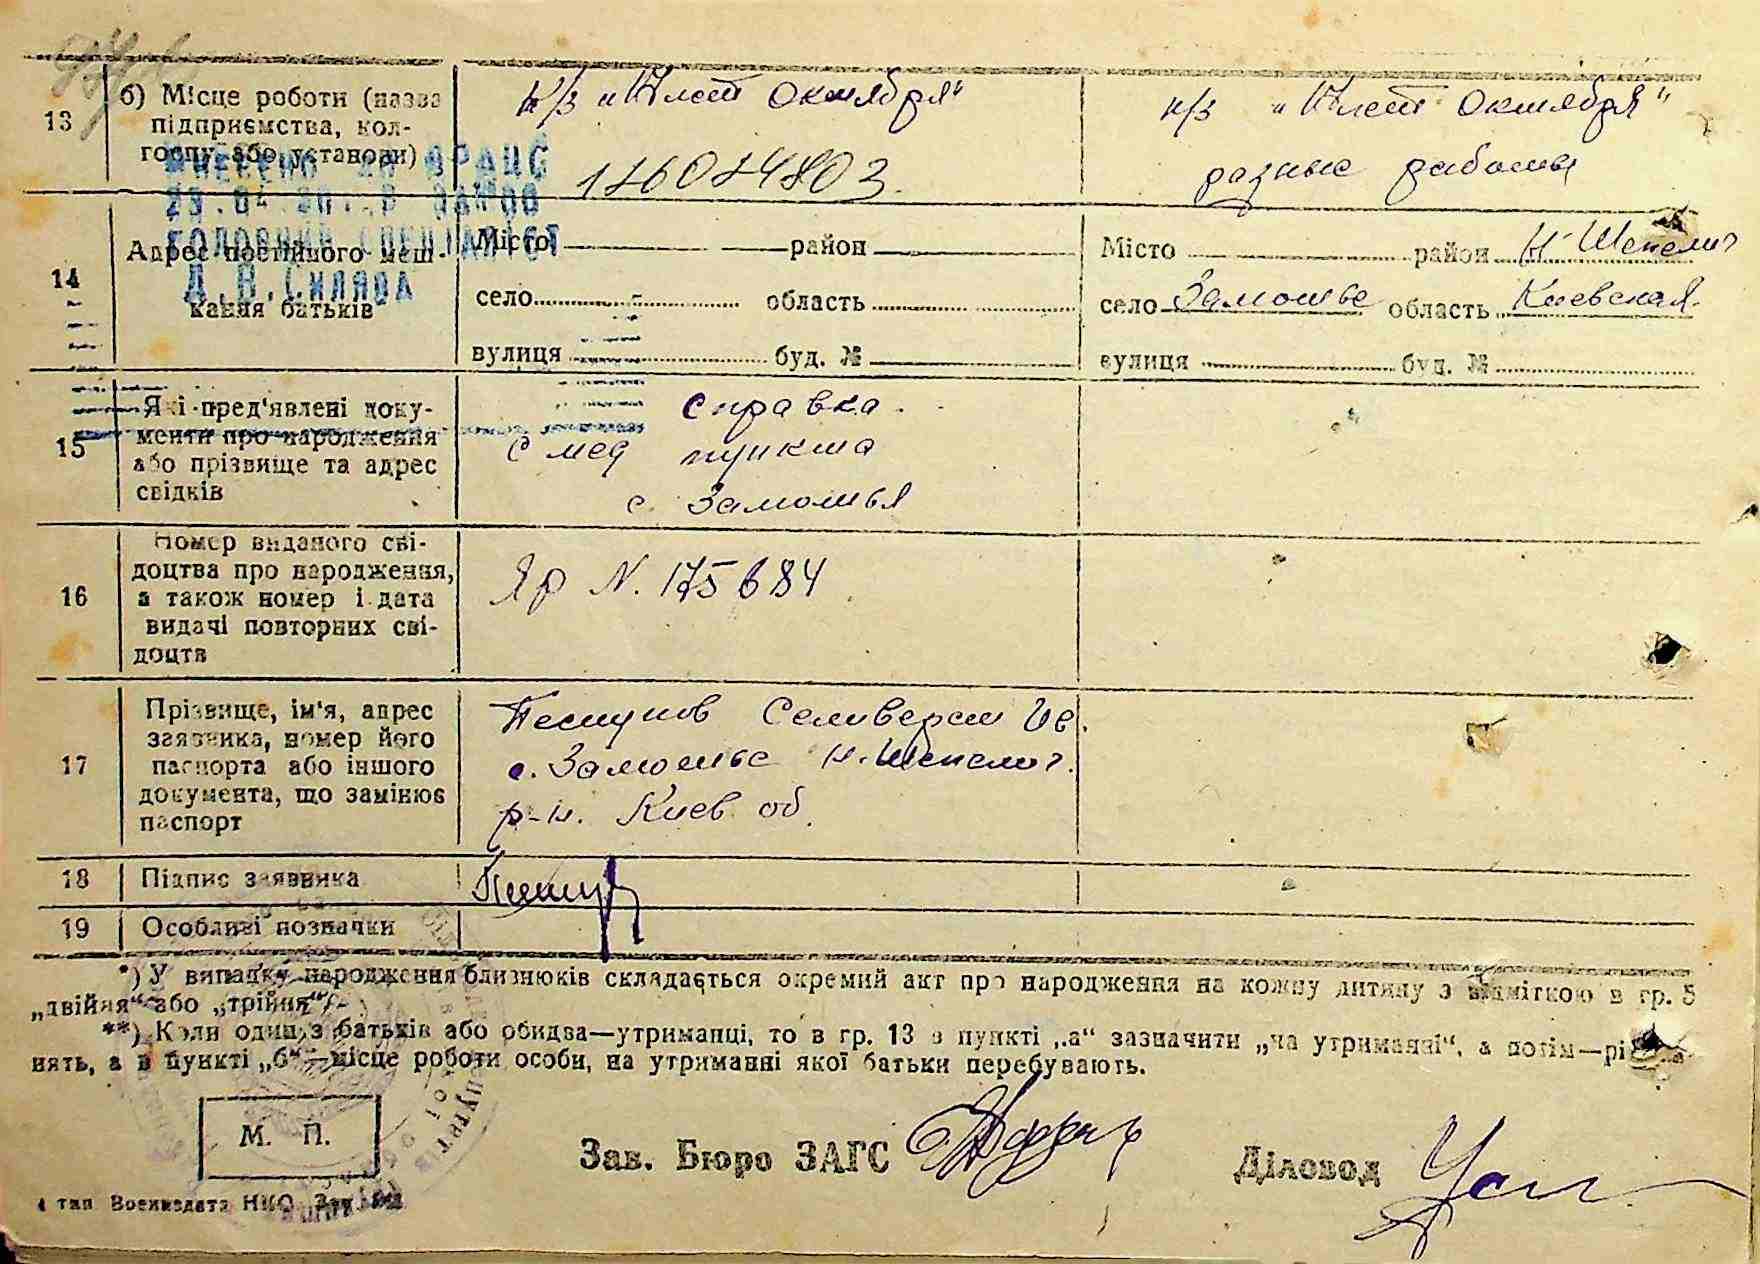 13
б) Місце роботи (назва
підприємства, кол-
госпу або установи)
к/з „Шлет Октября“
176074803
к/з „Шлет Октября“
разные работы
ВНЕСЕНО ДО ДРАЦС
ГОЛОВНИЙ СПЕЦІАЛІСТ
14
Адрес постійного меш-
кання батьків
Місто район
село область
вулиця буд. №
Місто район Н-Шепелич
село Замошье область Киевская
вулиця буд. №
15
Які пред'явлені доку-
менти про народження
або прізвище та адрес
свідків
справка
с мед пункта
с. Замошья
16
Номер виданого сві-
доцтва про народження,
а також номер і дата
видачі повторних сві-
доцтв
Яр N. 175684
17
Прізвище, ім'я, адрес
заявника, номер його
паспорта або іншого
документа, що замінює
паспорт
Селиверст Ив.
с. Замошье Н.-Шепелич.
р-н. Киев. об.
18
Підпис заявника
19
Особливі позначки
*) У випадку народження близнюків складається окремий акт про народження на кожну дитину з відміткою в гр. 5
„двійня“ або „трійня“.
**) Коли один з батьків або обидва—утриманці, то в гр. 13 в пункті „а“ зазначити „на утриманні“, а потім—
нять, а в пункті „б“—місце роботи особи, на утриманні якої батьки перебувають.
М. П.
Зав. Бюро ЗАГС
Діловод
4 тип Воениздата НКО Зак